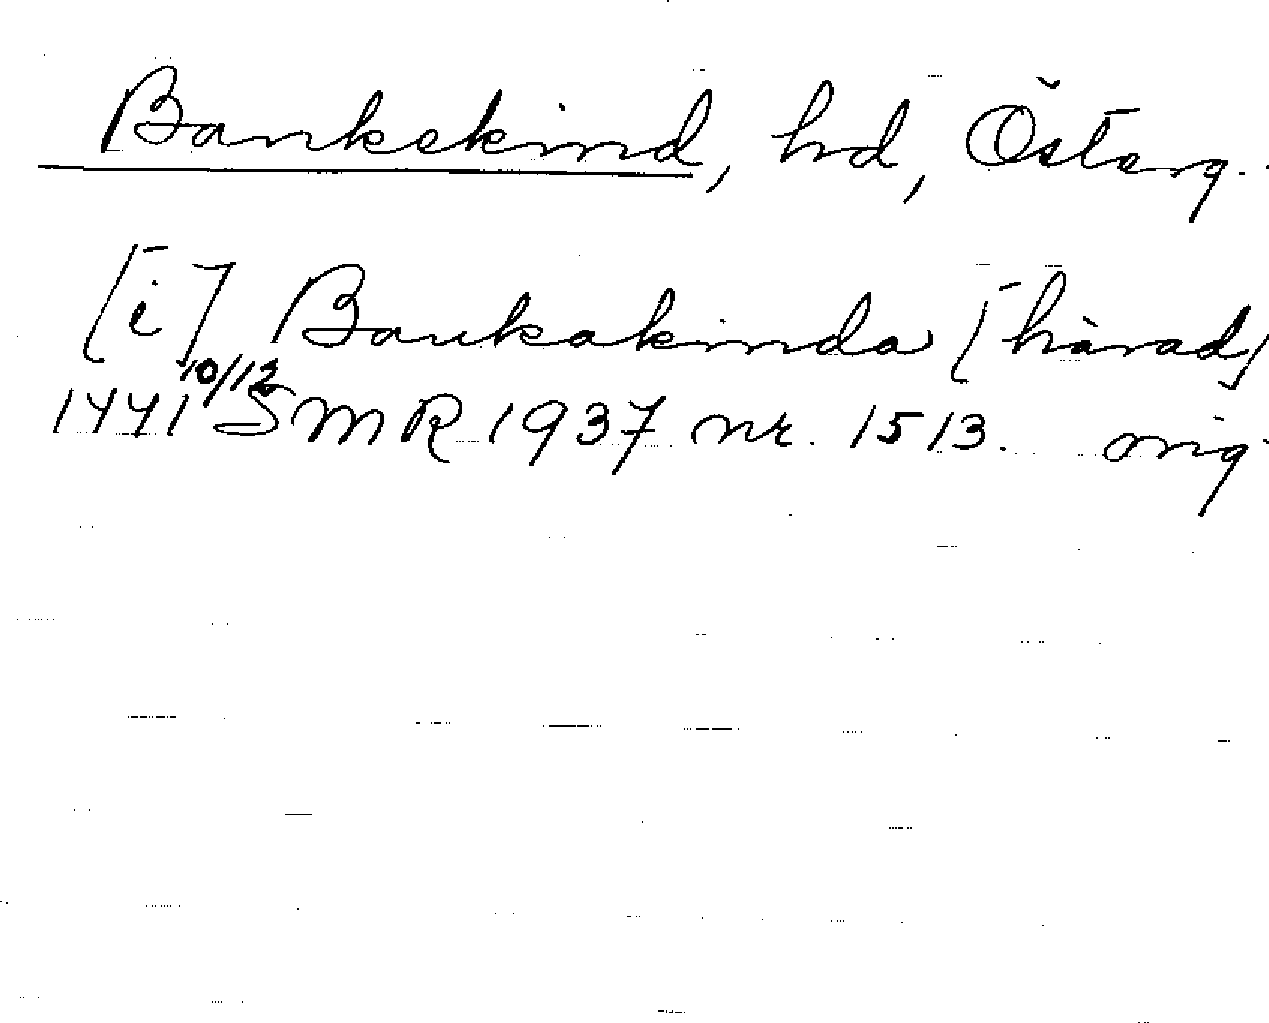 Bankekind, hd, Österg.
[i] Bankakinda [härad]
1441 10/12 SMR 1937 nr. 1513. orig.